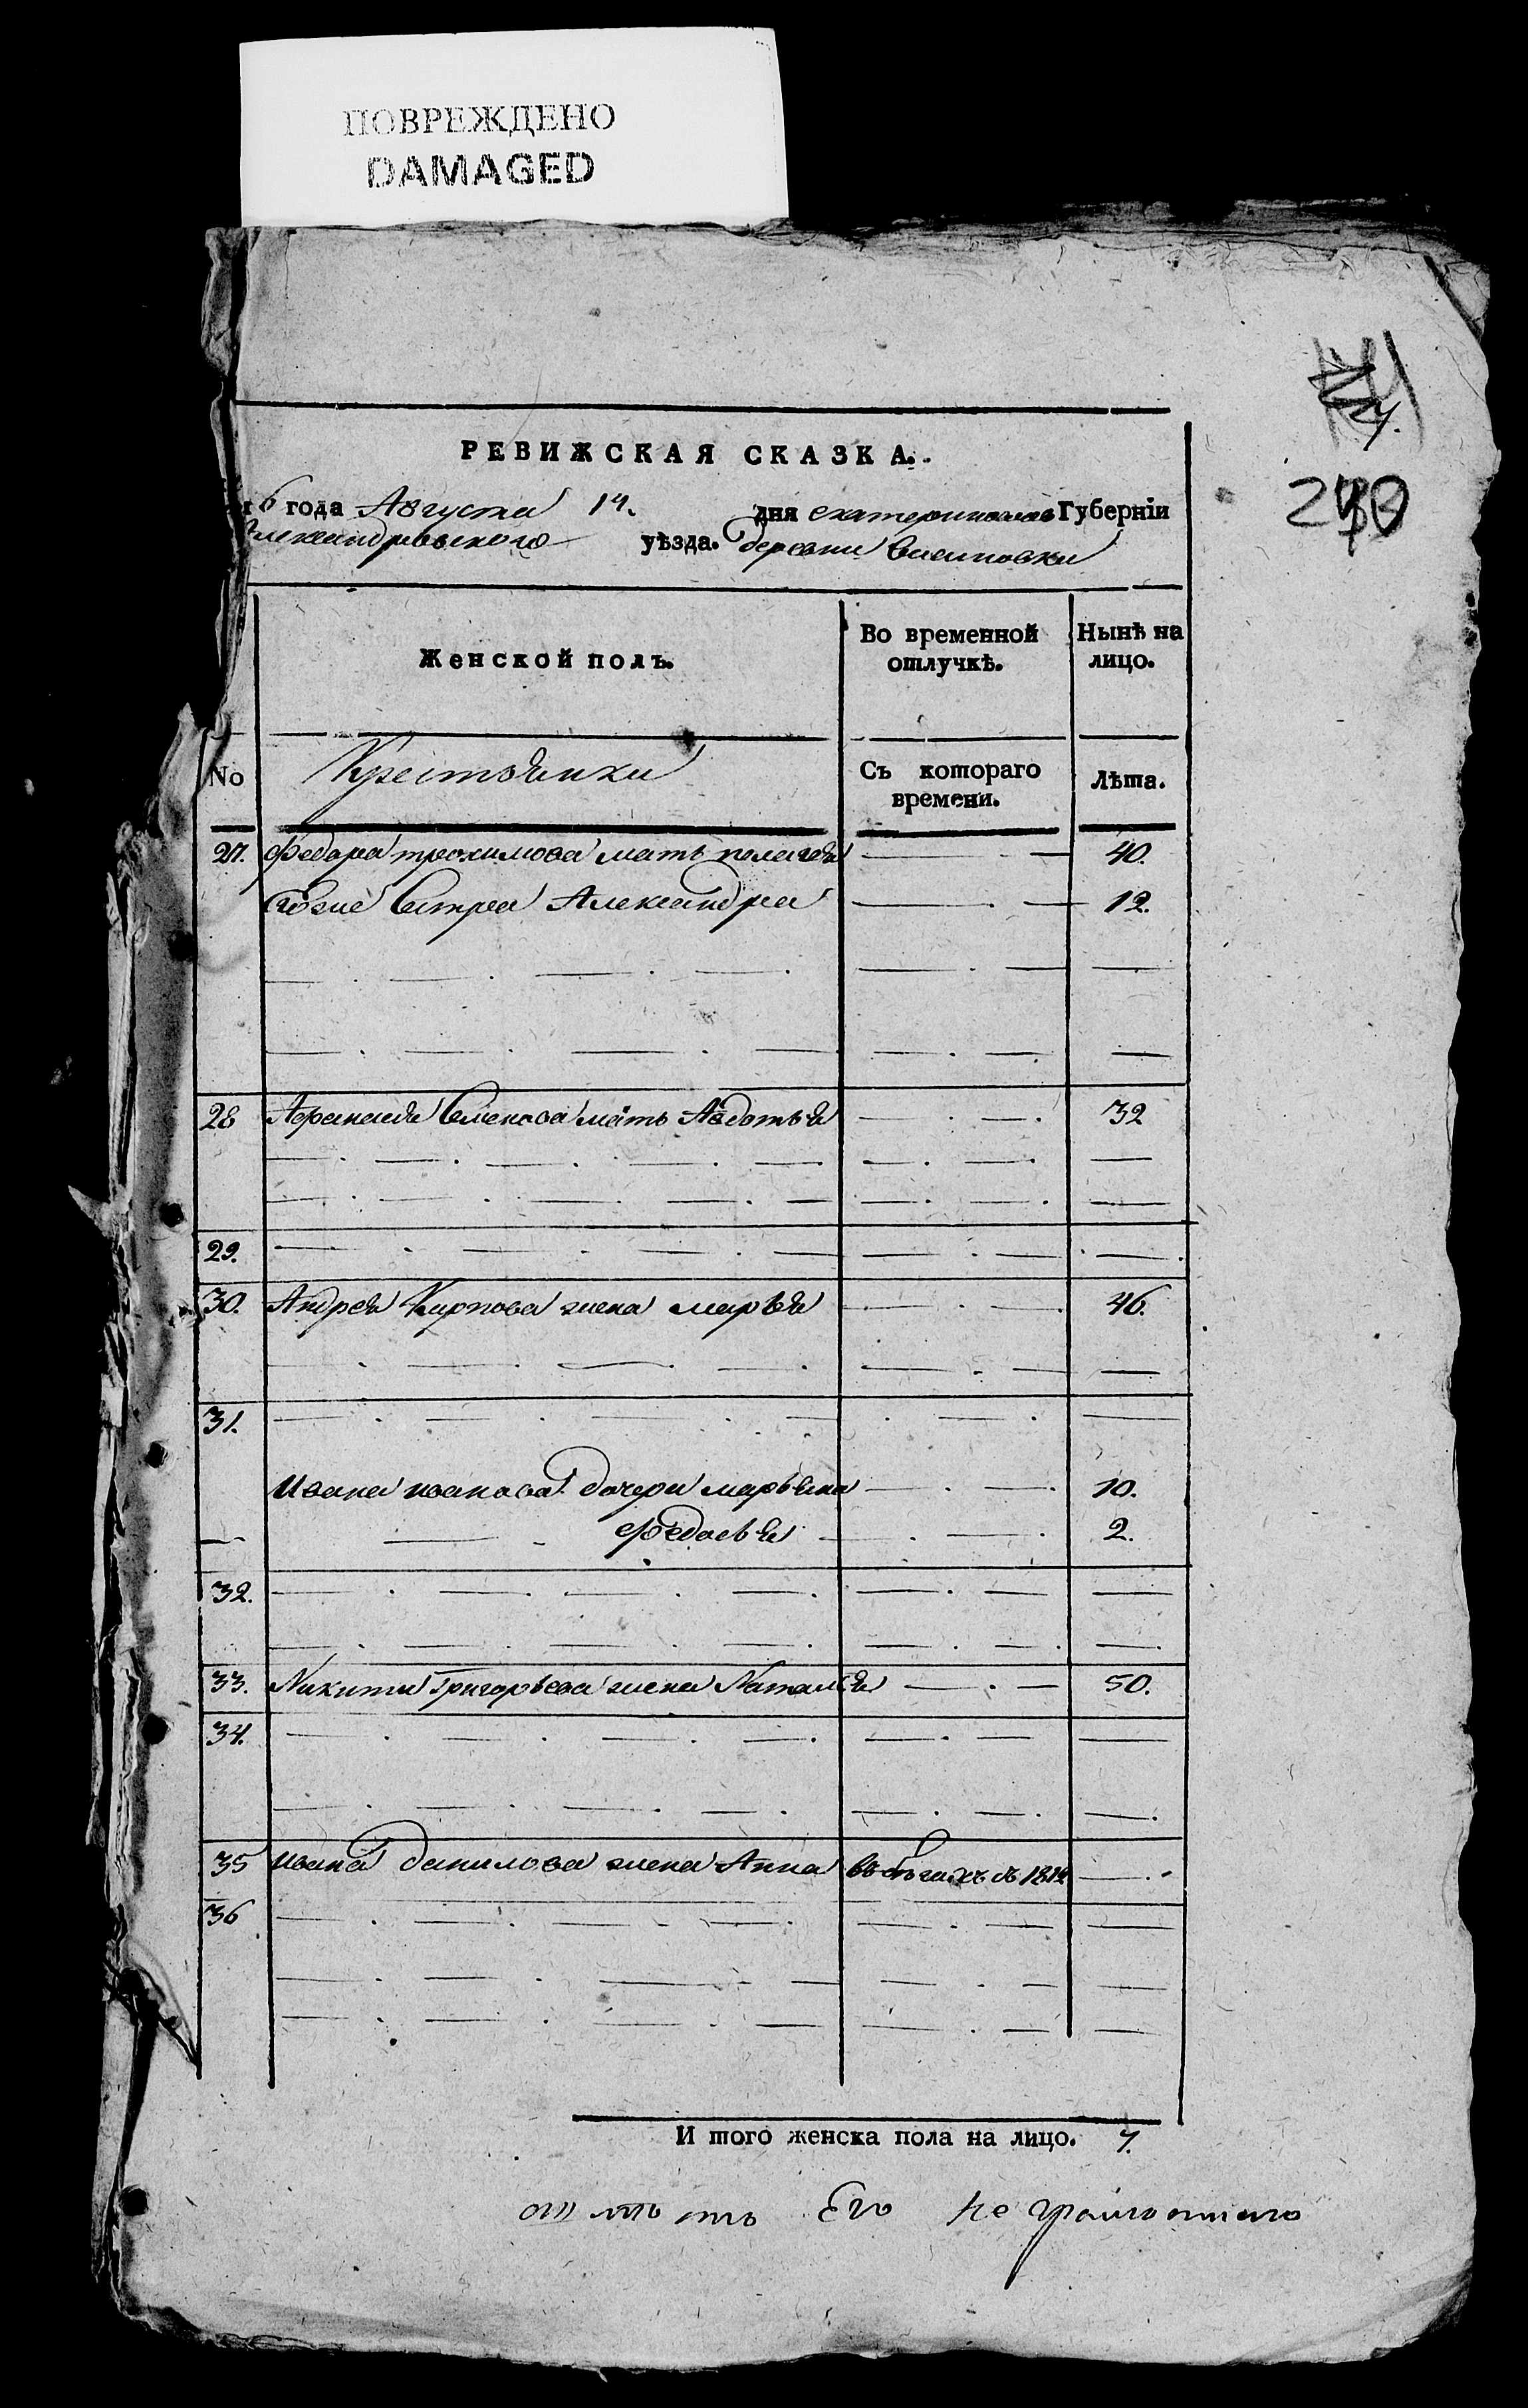 ПОВРЕЖДЕНО
DAMAGED
7.
РЕВИЖСКАЯ СКАЗКА.
6 года Августа 14. дня екатеринослав Губерніи
Александровского уѣзда. деревни
Женской полъ.
Во временной отлучкѣ.
Нынѣ на лицо.
No
Крестьянки
Съ котораго времени.
Лѣта.
27. Федора трохимова мать пелагея 40.
Его же сестра Александра 12.
28 Афанасия Семенова мать Авдотья 32
29.
30. Андрея Карпова жена марья 46.
31.
Ивана иванова дочери марьяна 10.
Федосья 2.
32.
33. Никиты Григорьева жена Наталья 50.
34.
35 Ивана данилова жена Анна въ бѣгахъ съ 1812
36
И того женска пола на лицо. 7.
Его не грамотного